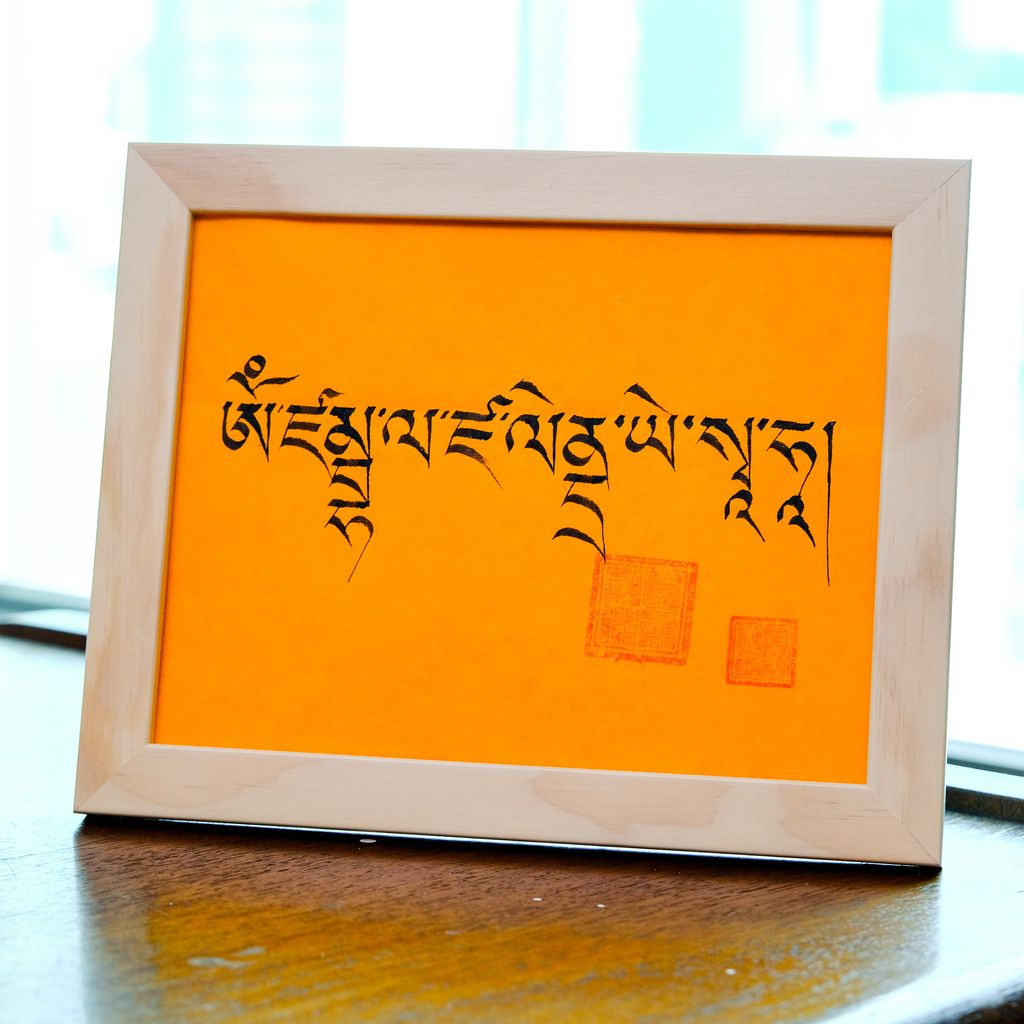 ཨོཾ་ཛམྦྷ་ལ་ཛ་ལེནྡྲ་ཡེ་སྭཱ་ཧཱ།